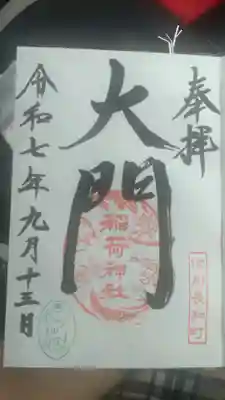 奉拝
大門
稲荷神社
令和七年九月十三日